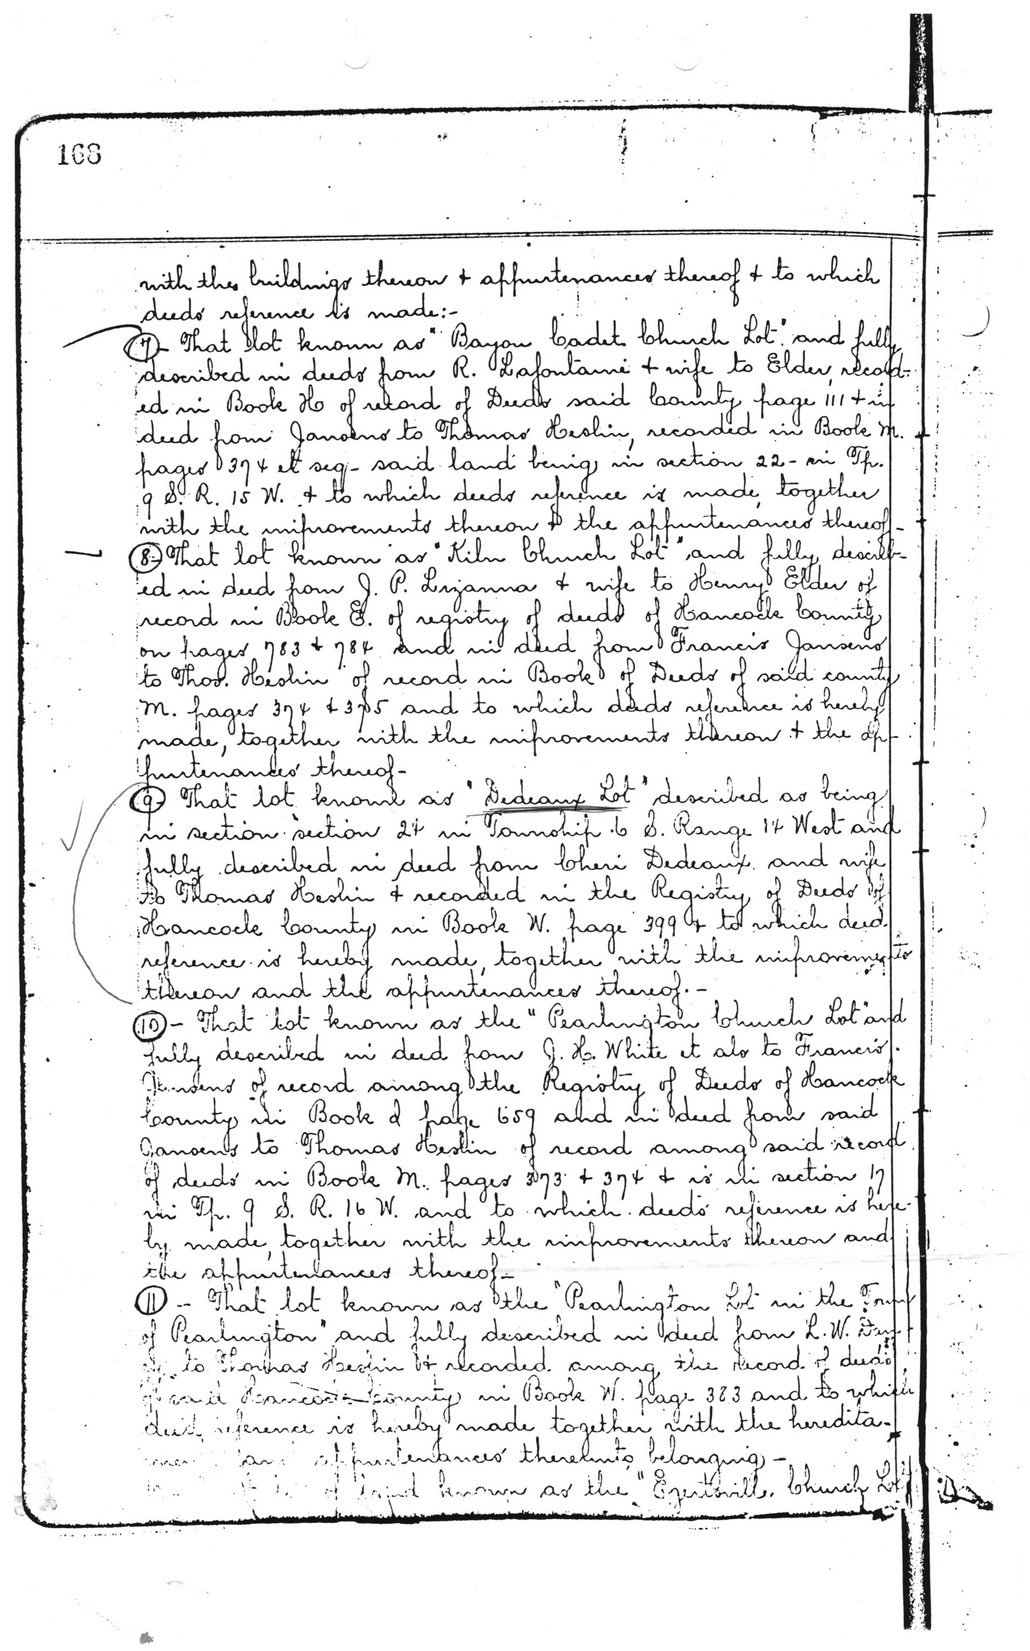 168
with the buildings thereon & appurtenances thereof & to which
deeds reference is made:-
(7)- That lot known as "Bayou Cadet Church Lot" and fully
described in deeds from R. Lafontaine & wife to Elder, record-
ed in Book H of record of Deeds said County page 111 & in
deed from Jansens to Thomas Heslin, recorded in Book M.
pages 374 et seq- said land being in section 22- in Tp.
9 S. R. 15 W. & to which deeds reference is made, together
with the improvements thereon & the appurtenances thereof-
(8-) That lot known as "Kiln Church Lot" and fully describ-
ed in deed from J. P. Lizanna & wife to Henry Elder of
record in Book E. of registry of deeds of Hancock County
on pages 783 & 784 and in deed from Francis Jansens
to Thos. Heslin of record in Book of Deeds of said county
M. pages 374 & 375 and to which deeds reference is hereby
made, together with the improvements thereon & the ap-
purtenances thereof-
(9-) That lot known as "Dedeaux Lot" described as being
in section section 24 in Township 6 S. Range 14 West and
fully described in deed from Cheri Dedeaux and wife
to Thomas Heslin & recorded in the Registry of Deeds of
Hancock County in Book W. page 399 & to which deed
reference is hereby made, together with the improvements
thereon and the appurtenances thereof.-
(10)- That lot known as the "Pearlington Church Lot" and
fully described in deed from J. H. White et als to Francis
Jansens of record among the Registry of Deeds of Hancock
County in Book page 659 and in deed from said
Jansens to Thomas Heslin of record among said record
of deeds in Book M. pages 373 & 374 & is in section 17
in Tp. 9 S. R. 16 W. and to which deeds reference is here-
by made, together with the improvements thereon and
the appurtenances thereof-
(11)- That lot known as the "Pearlington Lot in the Town
of Pearlington" and fully described in deed from L. W.
to Thomas Heslin & recorded among the record of deeds
of said Hancock County in Book W. page 383 and to which
deed reference is hereby made together with the heredita-
and appurtenances thereunto belonging-
of land known as the "Ezentsville Church Lot"